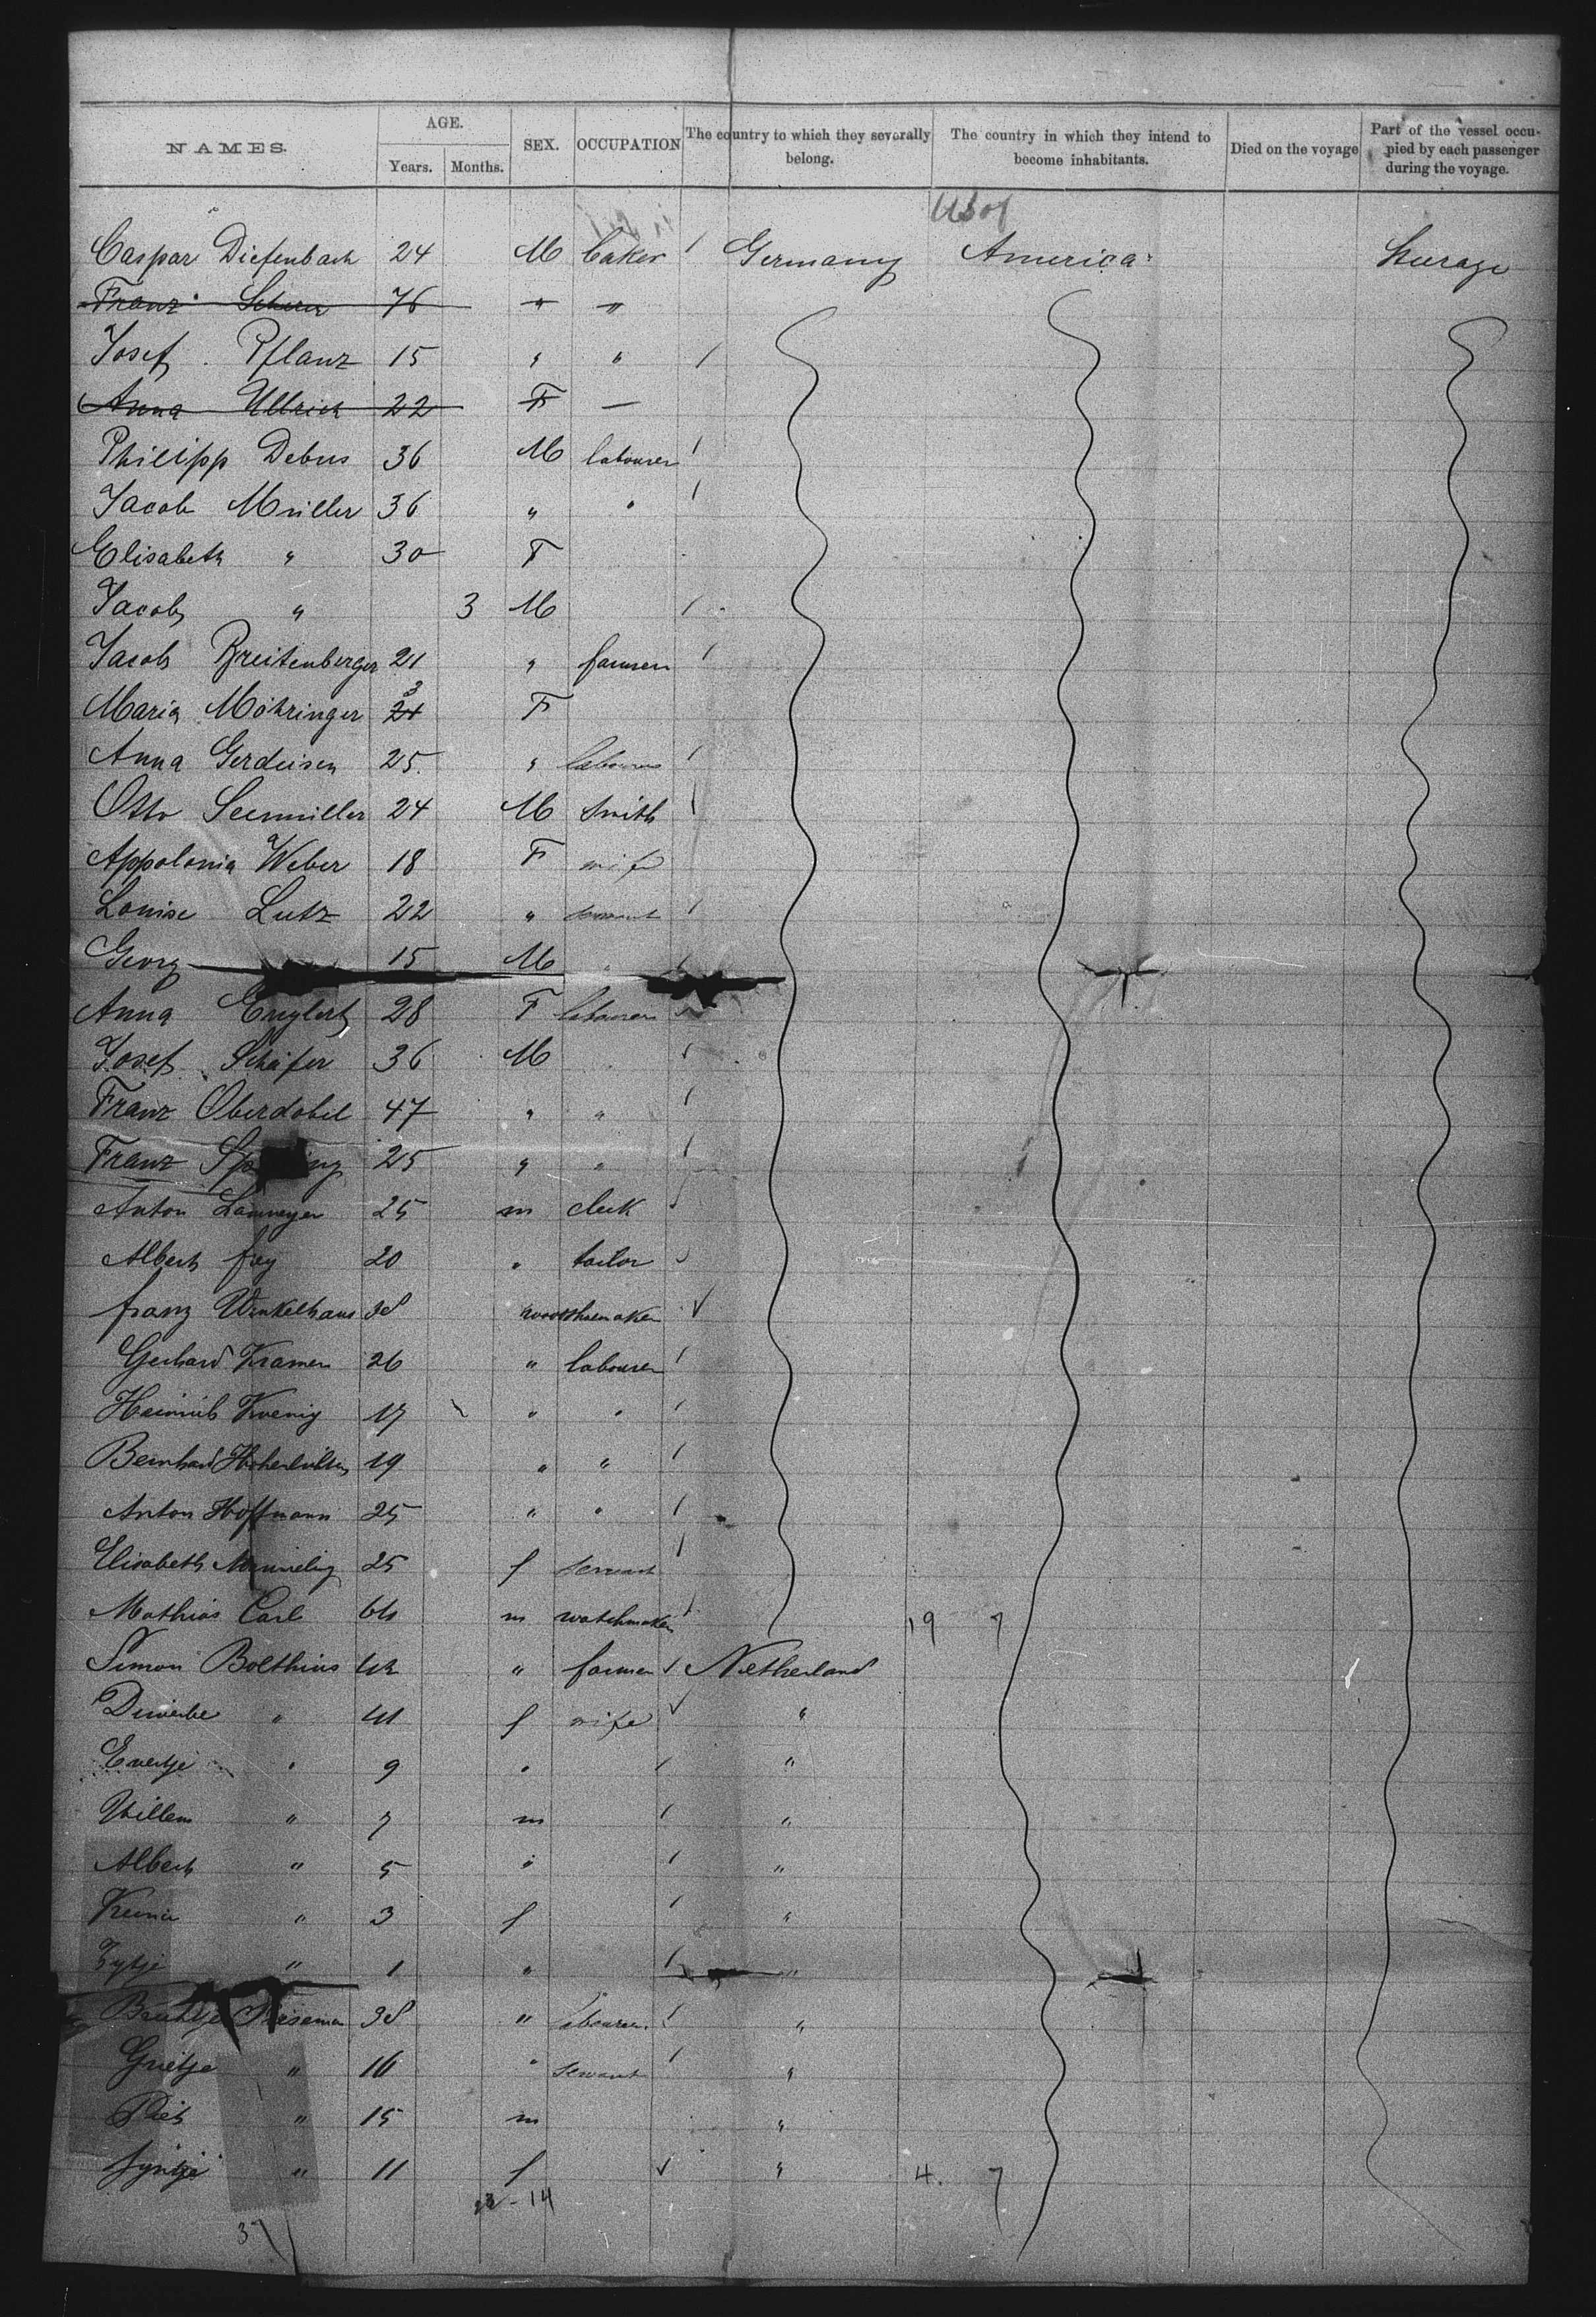 NAMES. AGE. Years. Months. SEX. OCCUPATION The country to which they severally belong. The country in which they intend to become inhabitants. Died on the voyage Part of the vessel occupied by each passenger during the voyage.
U S of
Caspar Diefenbach 24 M baker / Germany America Steerage
Franz Scherer 76 " "
Josef Pflanz 15 " " /
Anna Ullrich 22 F —
Philipp Debus 36 M labourer /
Jacob Müller 36 " " /
Elisabeth " 30 F
Jacob " 3 M /
Jacob Breitenberger 21 " farmer /
Maria Möhringer 21 3 F
Anna Gerdeisen 25 " labourer /
Otto Seemüller 24 M Smith /
Appolonia Weber 18 F wife
Louise Lutz 22 " servant /
Georg 15 M "
Anna Englert 28 F labourer
Josef Schäfer 36 M " /
Franz Oberdobel 47 " " /
Franz 25 " " /
Anton 25 m clerk /
Albert frey 20 " tailor
franz Winkelhaus 38 woodshoemaker ✓
Gerhard Kramer 26 " labourer /
Heinrich Koenig 17 " " /
Bernhard 19 " " /
Anton Hoffmann 25 " " /
Elisabeth 25 f servant /
Mathias Carl 64 m watchmaker / 19 7
Simon Bolthuis 42 " farmer ✓ Netherland
" 41 f wife ✓ "
Evertje " 9 " / "
Willem " 7 m / "
Albert " 5 " / "
" 3 f / "
Zytje " 1 " / "
38 " labourer / "
Grietje " 16 " servant / "
Piet " 15 m "
fyntje " 11 f ✓ " 4. 7
22 - 14
37